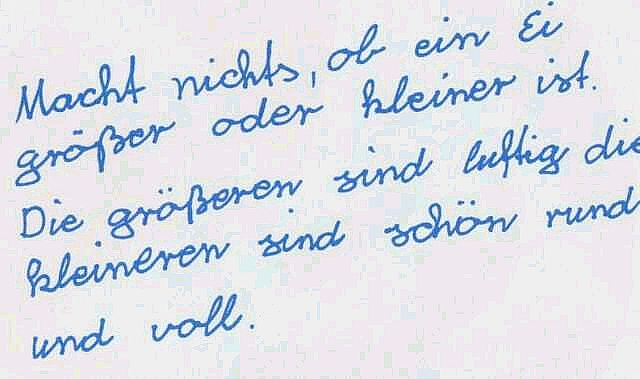 Macht nichts, ob ein Ei
größer oder kleiner ist.
Die größeren sind luftig die
kleineren sind schön rund
und voll.